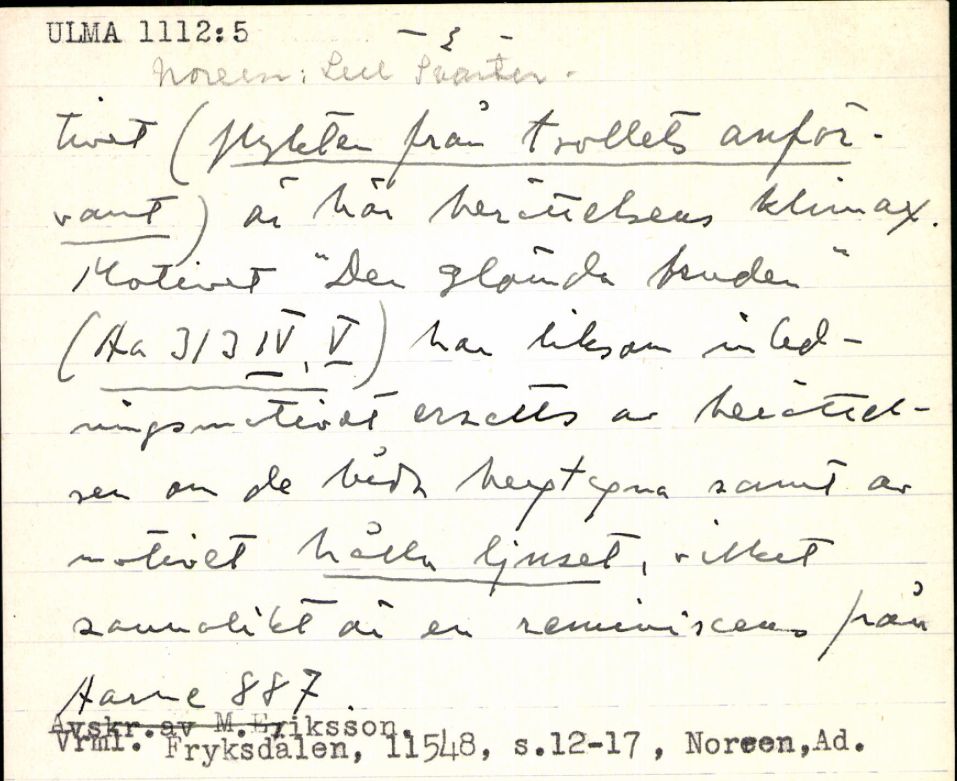 ULMA 1112:5
- 3 -
Noreen: Lell Svarten.
tivet (flykten från trollets anför-
vant) är här berättelsens klimax.
Motivet "Den glömda bruden"
(Aa 313 IV, V) har liksom inled-
ningsmotivet ersatts av berättel-
sen om de båda bergtagna samt av
motivet hålla ljuset, vilket
sannolikt är en reminiscens från
Aarne 887
Avskr. av M. Eriksson.
Vrml. Fryksdalen, 11548, s.12-17, Noreen,Ad.